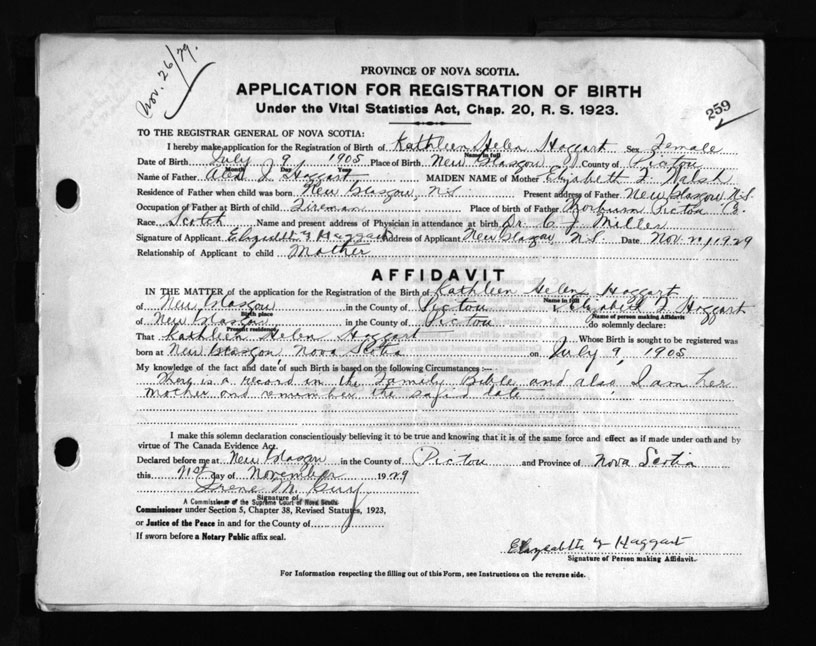 Nov. 26/29.
PROVINCE OF NOVA SCOTIA.
APPLICATION FOR REGISTRATION OF BIRTH
Under the Vital Statistics Act, Chap. 20, R. S. 1923.
259
TO THE REGISTRAR GENERAL OF NOVA SCOTIA:
I hereby make application for the Registration of Birth of Kathleen Helen Haggart Sex Female
Name in full
Date of Birth July 9, 1905 Place of Birth New Glasgow County of Pictou
Month Day Year
Name of Father Haggart MAIDEN NAME of Mother Elizabeth Walsh
Residence of Father when child was born New Glasgow, N.S. Present address of Father New Glasgow N.S.
Occupation of Father at Birth of child Fireman Place of birth of Father Thorburn Pictou Co.
Race Scotch Name and present address of Physician in attendance at birth Dr. C J Miller
Signature of Applicant Elizabeth Haggart Address of Applicant New Glasgow N.S. Date Nov. 21, 1929
Relationship of Applicant to child Mother
AFFIDAVIT
IN THE MATTER of the application for the Registration of the Birth of Kathleen Helen Haggart
Name in full
of New Glasgow in the County of Pictou Elizabeth Haggart
Birth place Name of person making Affidavit
of New Glasgow in the County of Pictou do solemnly declare:
Present residence
That Kathleen Helen Haggart Whose Birth is sought to be registered was
born at New Glasgow, Nova Scotia on July 9, 1905
My knowledge of the fact and date of such Birth is based on the following Circumstances :—
There is a record in the Family Bible and also I am her
mother and remember the date
I make this solemn declaration conscientiously believing it to be true and knowing that it is of the same force and effect as if made under oath and by
virtue of The Canada Evidence Act.
Declared before me at New Glasgow in the County of Pictou and Province of Nova Scotia
this 21st day of November 1929
Irene M.
Signature of
A Commissioner of the Supreme Court of Nova Scotia
Commissioner under Section 5, Chapter 38, Revised Statutes, 1923,
or Justice of the Peace in and for the County of
If sworn before a Notary Public affix seal.
Elizabeth Haggart
Signature of Person making Affidavit.
For Information respecting the filling out of this Form, see Instructions on the reverse side.